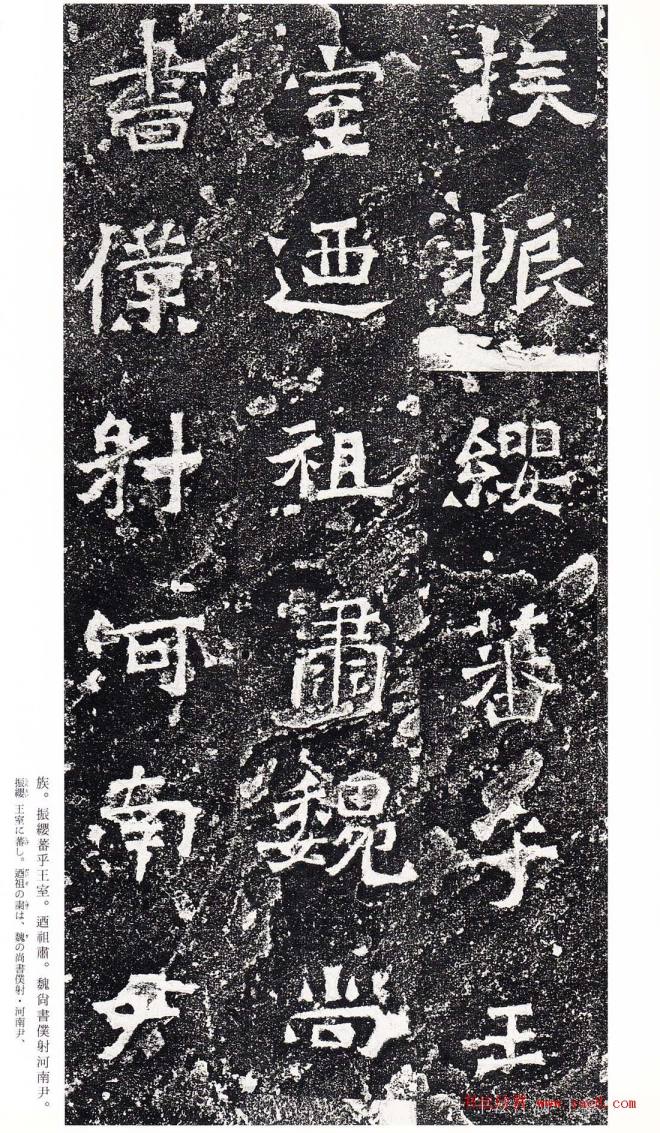 族振纓蕃乎王
室迺祖肅魏尚
書僕射河南尹
族。振纓蕃乎王室。迺祖肅。魏尙書僕射河南尹。
振纓王室に蕃し。迺祖の肅は、魏の尚書僕射・河南尹、